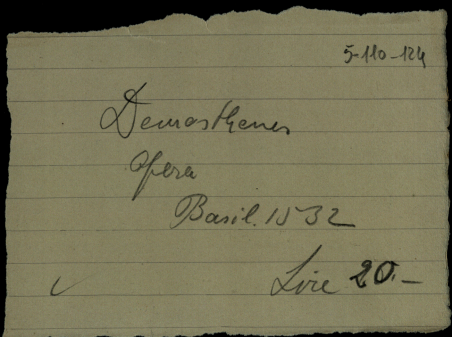 5-110-124
Demosthenes
Opera
Basil. 1532
Lire 20.-